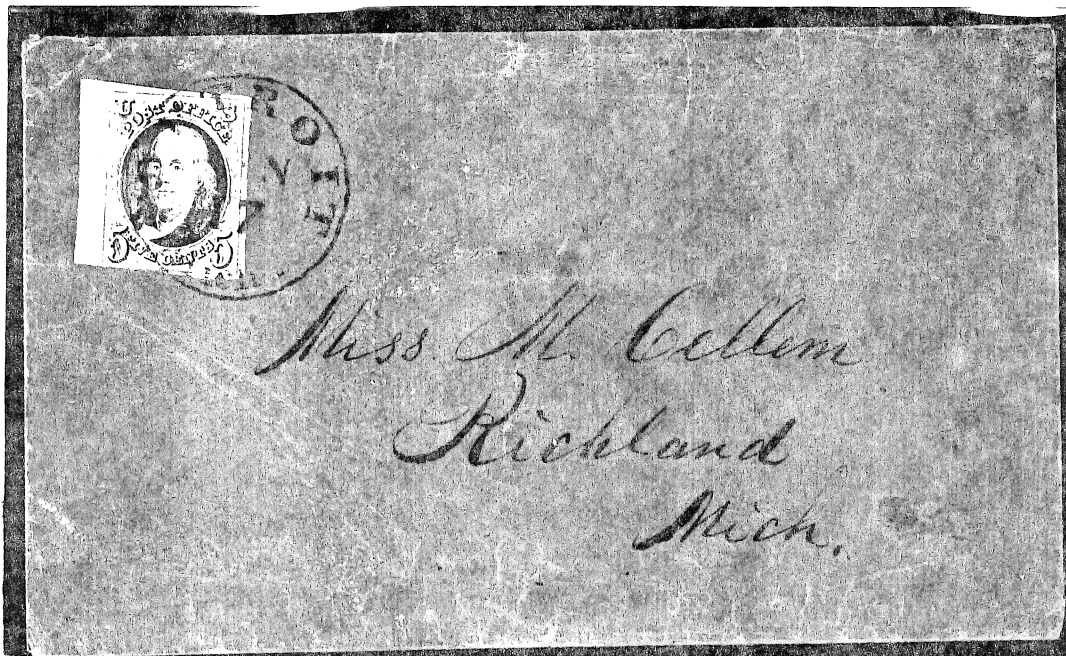 POST OFFICE
5 FIVE CENTS 5
TROIT
Miss M. Cellem
Richland
Mich.